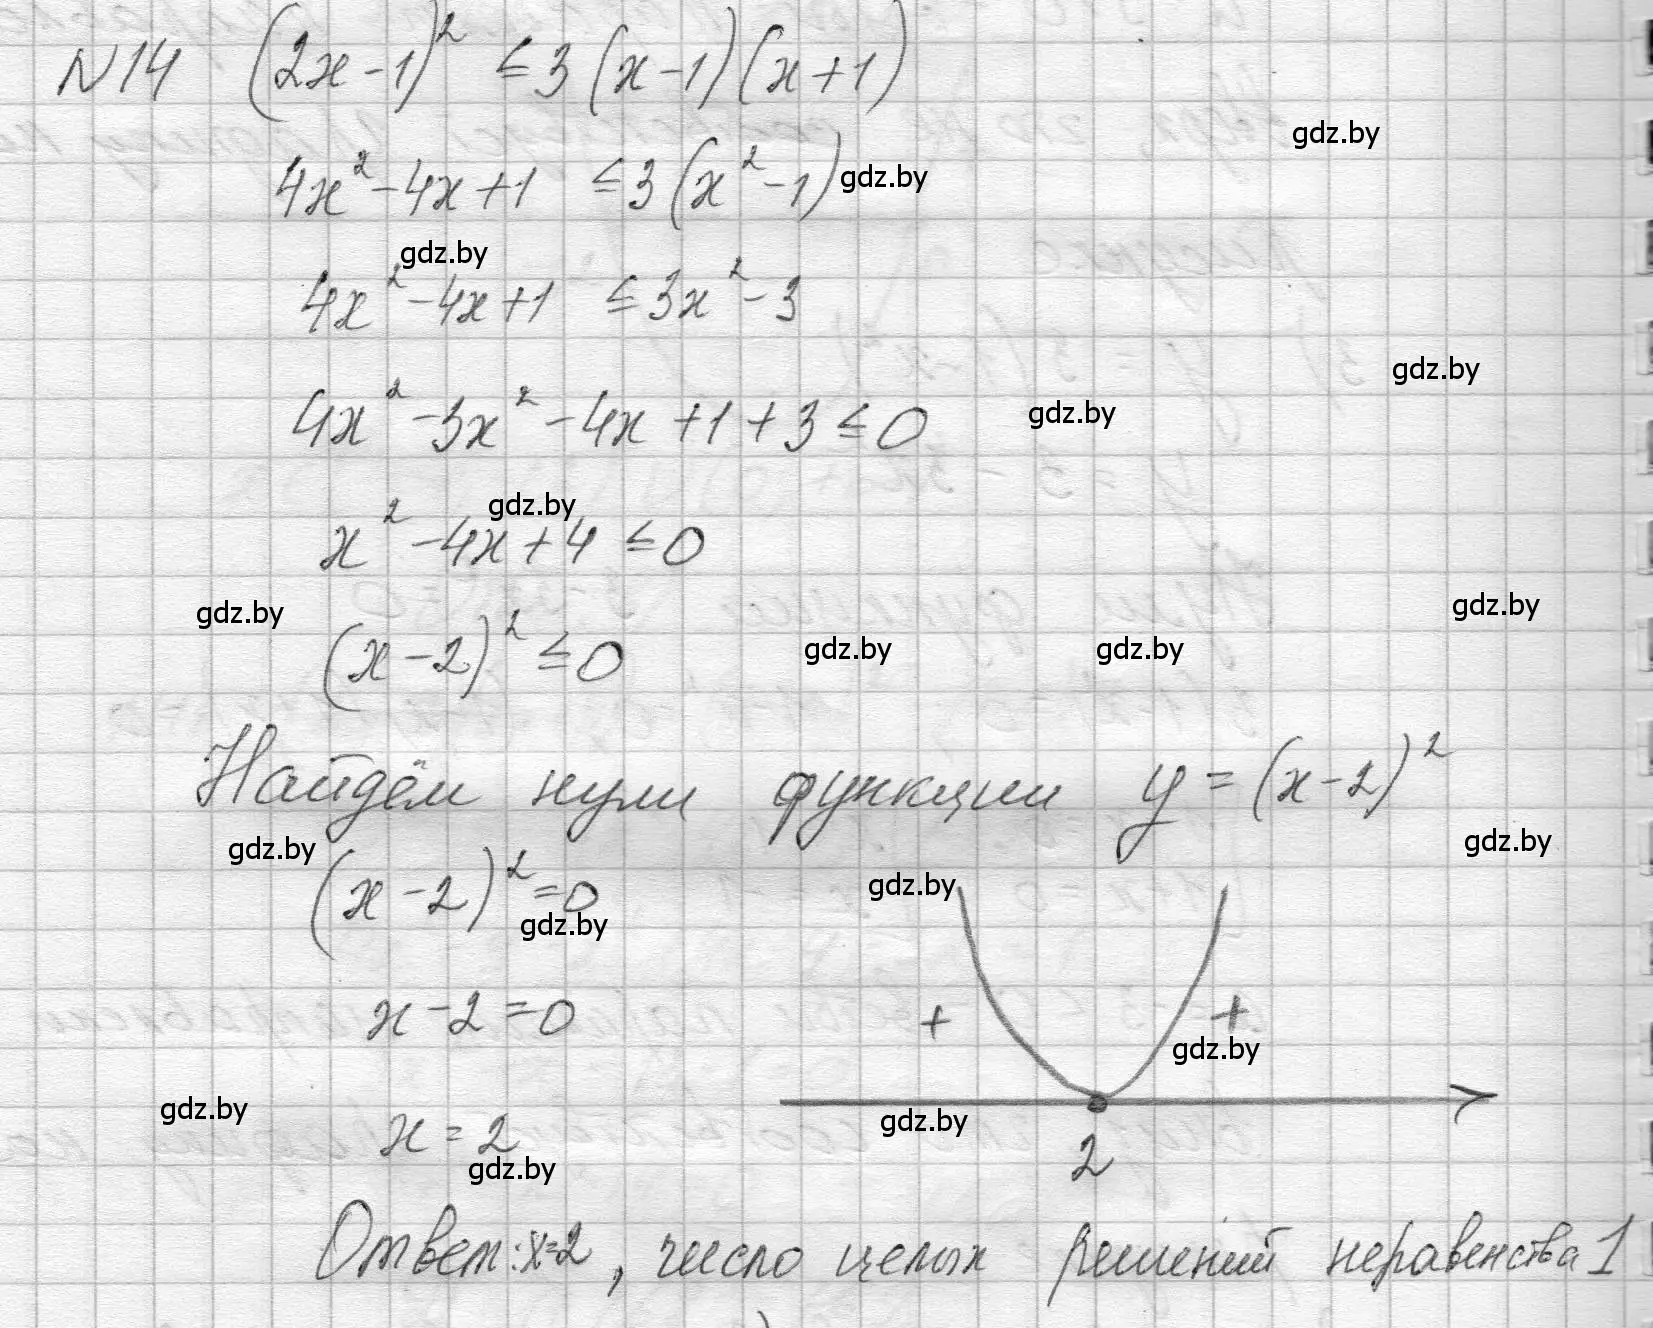 N14 (2x-1)² ≤ 3(x-1)(x+1)
gdz.by
4x²-4x+1 ≤ 3(x²-1) gdz.by
gdz.by
4x²-4x+1 ≤ 3x²-3
gdz.by
4x²-3x²-4x+1+3 ≤ 0 gdz.by
gdz.by
x²-4x+4 ≤ 0
gdz.by gdz.by
(x-2)² ≤ 0 gdz.by gdz.by
Найдём нули функции y=(x-2)²
gdz.by gdz.by
(x-2)²=0 gdz.by
gdz.by
x-2=0 + +
gdz.by
gdz.by gdz.by
x=2 2
gdz.by
Ответ: x=2, число целых решений неравенства 1